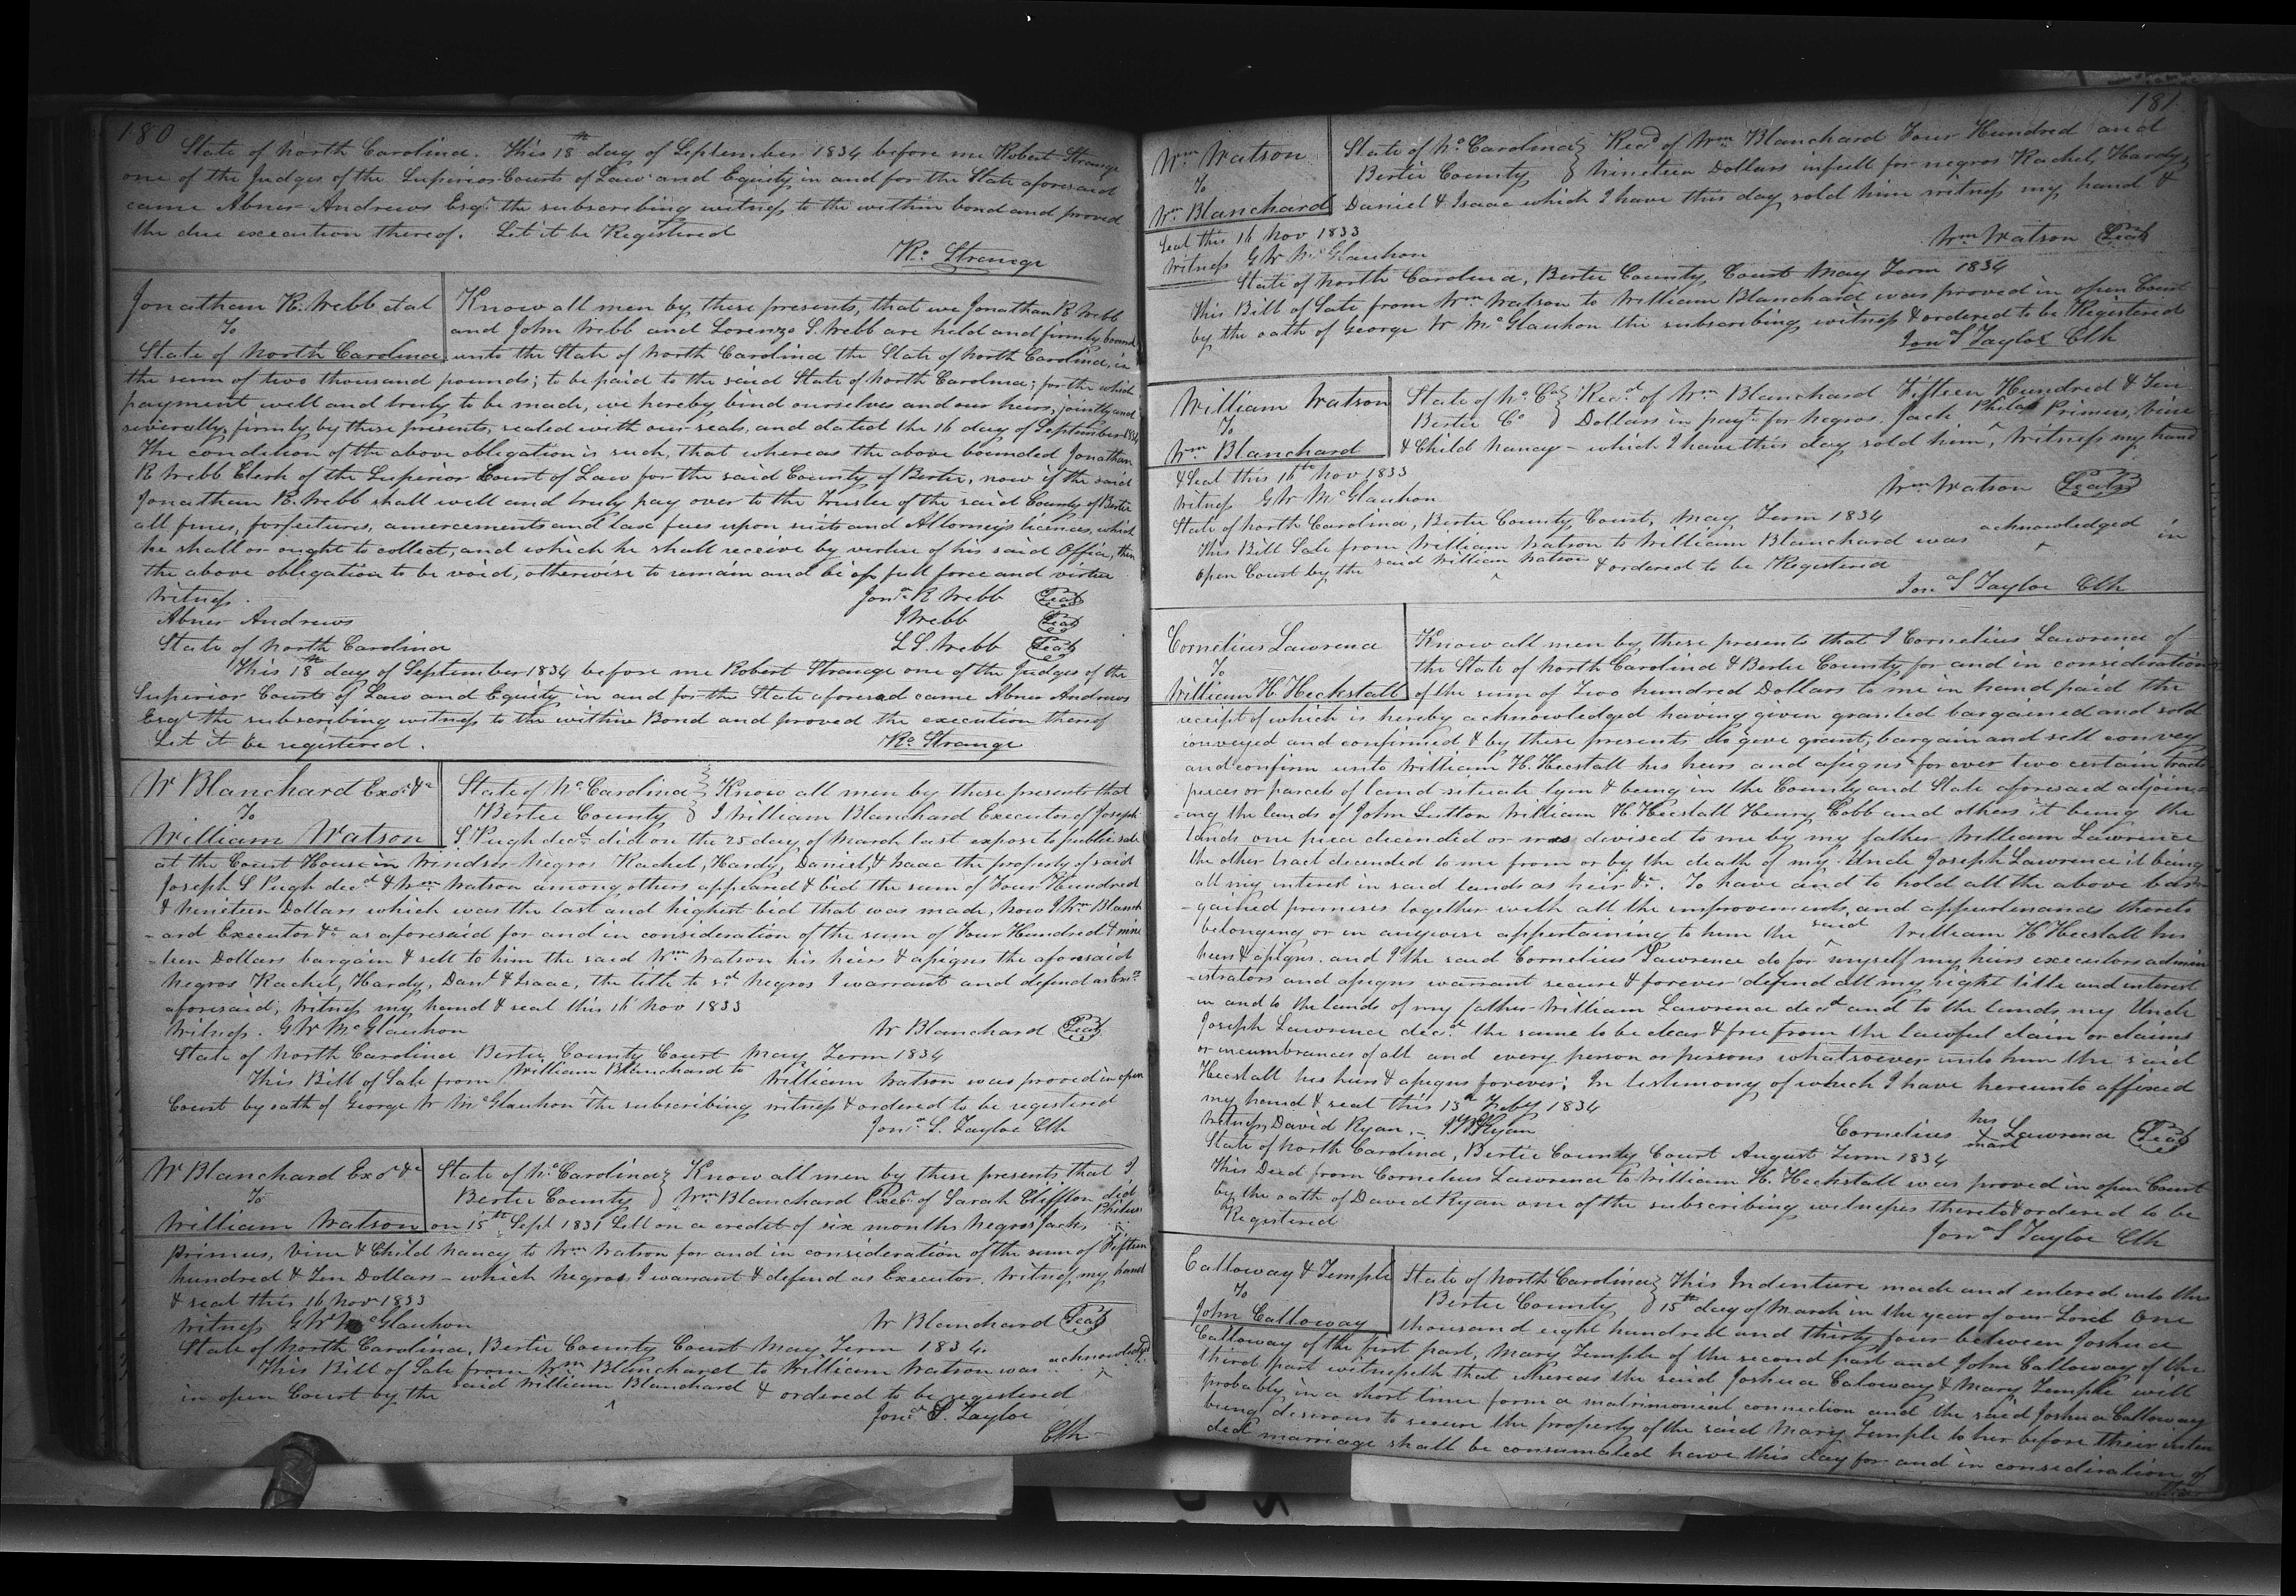 180
State of North Carolina. This 18th day of September 1834 before me Robert Strange
one of the Judges of the Superior Courts of Law and Equity in and for the State aforesaid
came Abner Andrews Esqr. the subscribing witness to the within bond and proved
the due execution thereof. Let it be Registered
Ro. Strange
Jonathan R. Webb et al
To
State of North Carolina
Know all men by these presents, that we Jonathan R Webb
and John Webb and Lorenzo S. Webb are held and firmly bound
unto the State of North Carolina the State of North Carolina, in
the sum of two thousand pounds; to be paid to the said State of North Carolina; for the which
payment well and truly to be made, we hereby bind ourselves and our heirs, jointly and
severally, firmly by these presents, sealed with our seals, and dated the 16 day of September 1834
The condition of the above obligation is such, that whereas the above bounded Jonathan
R Webb Clerk of the Superior Court of Law for the said County of Bertie, now if the said
Jonathan R. Webb shall well and truly pay over to the Trustee of the said County of Bertie
all fines, forfeitures, amercements and tax fees upon suits and Attorney's licences, which
he shall or ought to collect, and which he shall receive by virtue of his said Office, then
the above obligation to be void, otherwise to remain and be of full force and virtue
Witness. Jona. R Webb Seal
Abner Andrews J Webb Seal
State of North Carolina L S. Webb Seal
This 18th day of September 1834 before me Robert Strange one of the Judges of the
Superior Courts of Law and Equity in and for the State aforesad came Abner Andrews
Esqr the subscribing witness to the within Bond and proved the execution thereof
Let it be registered. Ro. Strange
W Blanchard Exor. &c
To
William Watson
State of No. Carolina } Know all men by these presents that
Bertie County } I William Blanchard Executor of Joseph
S. Pugh decd. did on the 25 day of March last expose to public sale
at the Court House in Windsor Negros Rachel, Hardy, Daniel, & Isaac the property of said
Joseph S Pugh decd. & Wm Watson among others appeared & bid the sum of Four Hundred
& Nineteen Dollars which was the last and highest bid that was made, now I Wm Blanch
-ard Executor &c as aforesaid for and in consideration of the sum of Four Hundred & nine
-teen Dollars bargain & sell to him the said Wm Watson his heirs & assigns the aforesaid
Negros Rachel, Hardy, Danl & Isaac, the title to sd. negros I warrant and defend as Exor
aforesaid, Witness my hand & seal this 16 Nov 1833
Witness. G W McGlauhon W Blanchard Seal
State of North Carolina Bertie County Court May Term 1834
This Bill of Sale from William Blanchard to William Watson was proved in open
Court by oath of George W McGlauhon the subscribing witness & ordered to be registered
Jona. S. Tayloe Clk
W Blanchard Exor &c
To
William Watson
State of No. Carolina } Know all men by these presents that I
Bertie County } Wm Blanchard Execr. of Sarah Cliffton did
on 15th Sept 1831 Sell on a credit of six months Negros Jack, Philus
Primus, Vine & Child Nancy to Wm Watson for and in consideration of the sum of Fifteen
hundred & Ten Dollars - which negros I warrant & defend as Executor. Witness my hand
& seal this 16 Nov 1833
Witness G W McGlauhon W Blanchard Seal
State of North Carolina, Bertie County Court May Term 1834.
This Bill of Sale from Wm Blanchard to William Watson was acknowledgd.
in open Court by the said William Blanchard & ordered to be registered
Jona. S. Tayloe
Clk
181
Wm Watson
To
Wm. Blanchard
State of No. Carolina } Recd of Wm Blanchard Four Hundred and
Bertie County } Nineteen Dollars in full for negros Rachel, Hardy,
Daniel & Isaac which I have this day sold him witness my hand &
Seal this 16 Nov 1833 Wm Watson Seal
Witness G W McGlauhon
State of North Carolina, Bertie County Court May Term 1834
This Bill of Sale from Wm Watson to William Blanchard was proved in open Court
by the oath of George W McGlauhon the subscribing witness & ordered to be Registered
Jona S Tayloe Clk
William Watson
To
Wm Blanchard
State of No. Ca } Recd. of Wm Blanchard Fifteen Hundred & Ten
Bertie Co } Dollars in payt. for negros, Jack Philas Primus, Vine
& Child Nancy - which I have this day sold him, Witness my hand
& Seal this 16th Nov 1833 Wm Watson Seal
Witness G W McGlauhon
State of North Carolina, Bertie County Court, May Term 1834
This Bill Sale from William Watson to William Blanchard was acknowledged in
open Court by the said William Watson & ordered to be Registered
Jona S Tayloe Clk
Cornelius Lawrence
To
William H. Heckstall
Know all men by these presents that I Cornelius Lawrence of
the State of North Carolina & Bertie County for and in consideration
of the sum of Two hundred Dollars to me in hand paid the
receipt of which is hereby acknowledged having given granted bargained and sold
conveyed and confirmed & by these presents do give grant, bargain and sell convey
and confirm unto William H. Hecstall his heirs and assigns forever two certain tracts
pieces or parcels of land situate lyin & being in the County and State aforesaid adjoin-
-ing the lands of John Sutton William H Hecstall Henry Cobb and others it being the
lands one piece decended or was devised to me by my father William Lawrence
the other tract decended to me from or by the death of my Uncle Joseph Lawrence it being
all my interest in said lands as heir &c. To have and to hold all the above bar-
-gained premises together with all the improvements, and appurtenances thereto
belonging or in anywise appertaining to him the said William H Hecstall his
heirs & assigns. and I the said Cornelius Lawrence do for myself my heirs executors admin
-istrators and assigns warrant secure & forever defend all my right title and interest
in and to the lands of my father William Lawrence decd and to the lands my Uncle
Joseph Lawrence decd. the same to be clear & free from the lawful claim or claims
or incumbrances of all and every person or persons whatsoever unto him the said
Hecstall his heirs & assigns forever; In testimony of which I have hereunto affixed
my hand & seal this 13th Feby 1834
Witness, David Ryan - Cornelius his X mark Lawrence Seal
State of North Carolina, Bertie County Court August Term 1834
This Deed from Cornelius Lawrence to William H. Heckstall was proved in open Court
by the oath of David Ryan one of the subscribing witnesses thereto & ordered to be
Registered Jona S Tayloe Clk
Calloway & Temple
To
John Calloway
State of North Carolina } This Indenture made and entered into this
Bertie County } 15th day of March in the year of our Lord One
thousand eight hundred and thirty four between Joshua
Calloway of the first part, Mary Temple of the second part and John Calloway of the
third part witnesseth that whereas the said Joshua Caloway & Mary Temple will
probably in a short time form a matrimonial connection and the said Joshua Calloway
being desirous to secure the property of the said Mary Temple to her before their inten
ded marriage shall be consumated have this day for and in consideration of